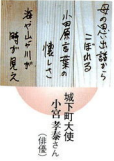 母の思出話から
こぼれる
小田原言葉の
懐しさ
時が見え
城下町大使
小宮孝泰さん
(俳優)